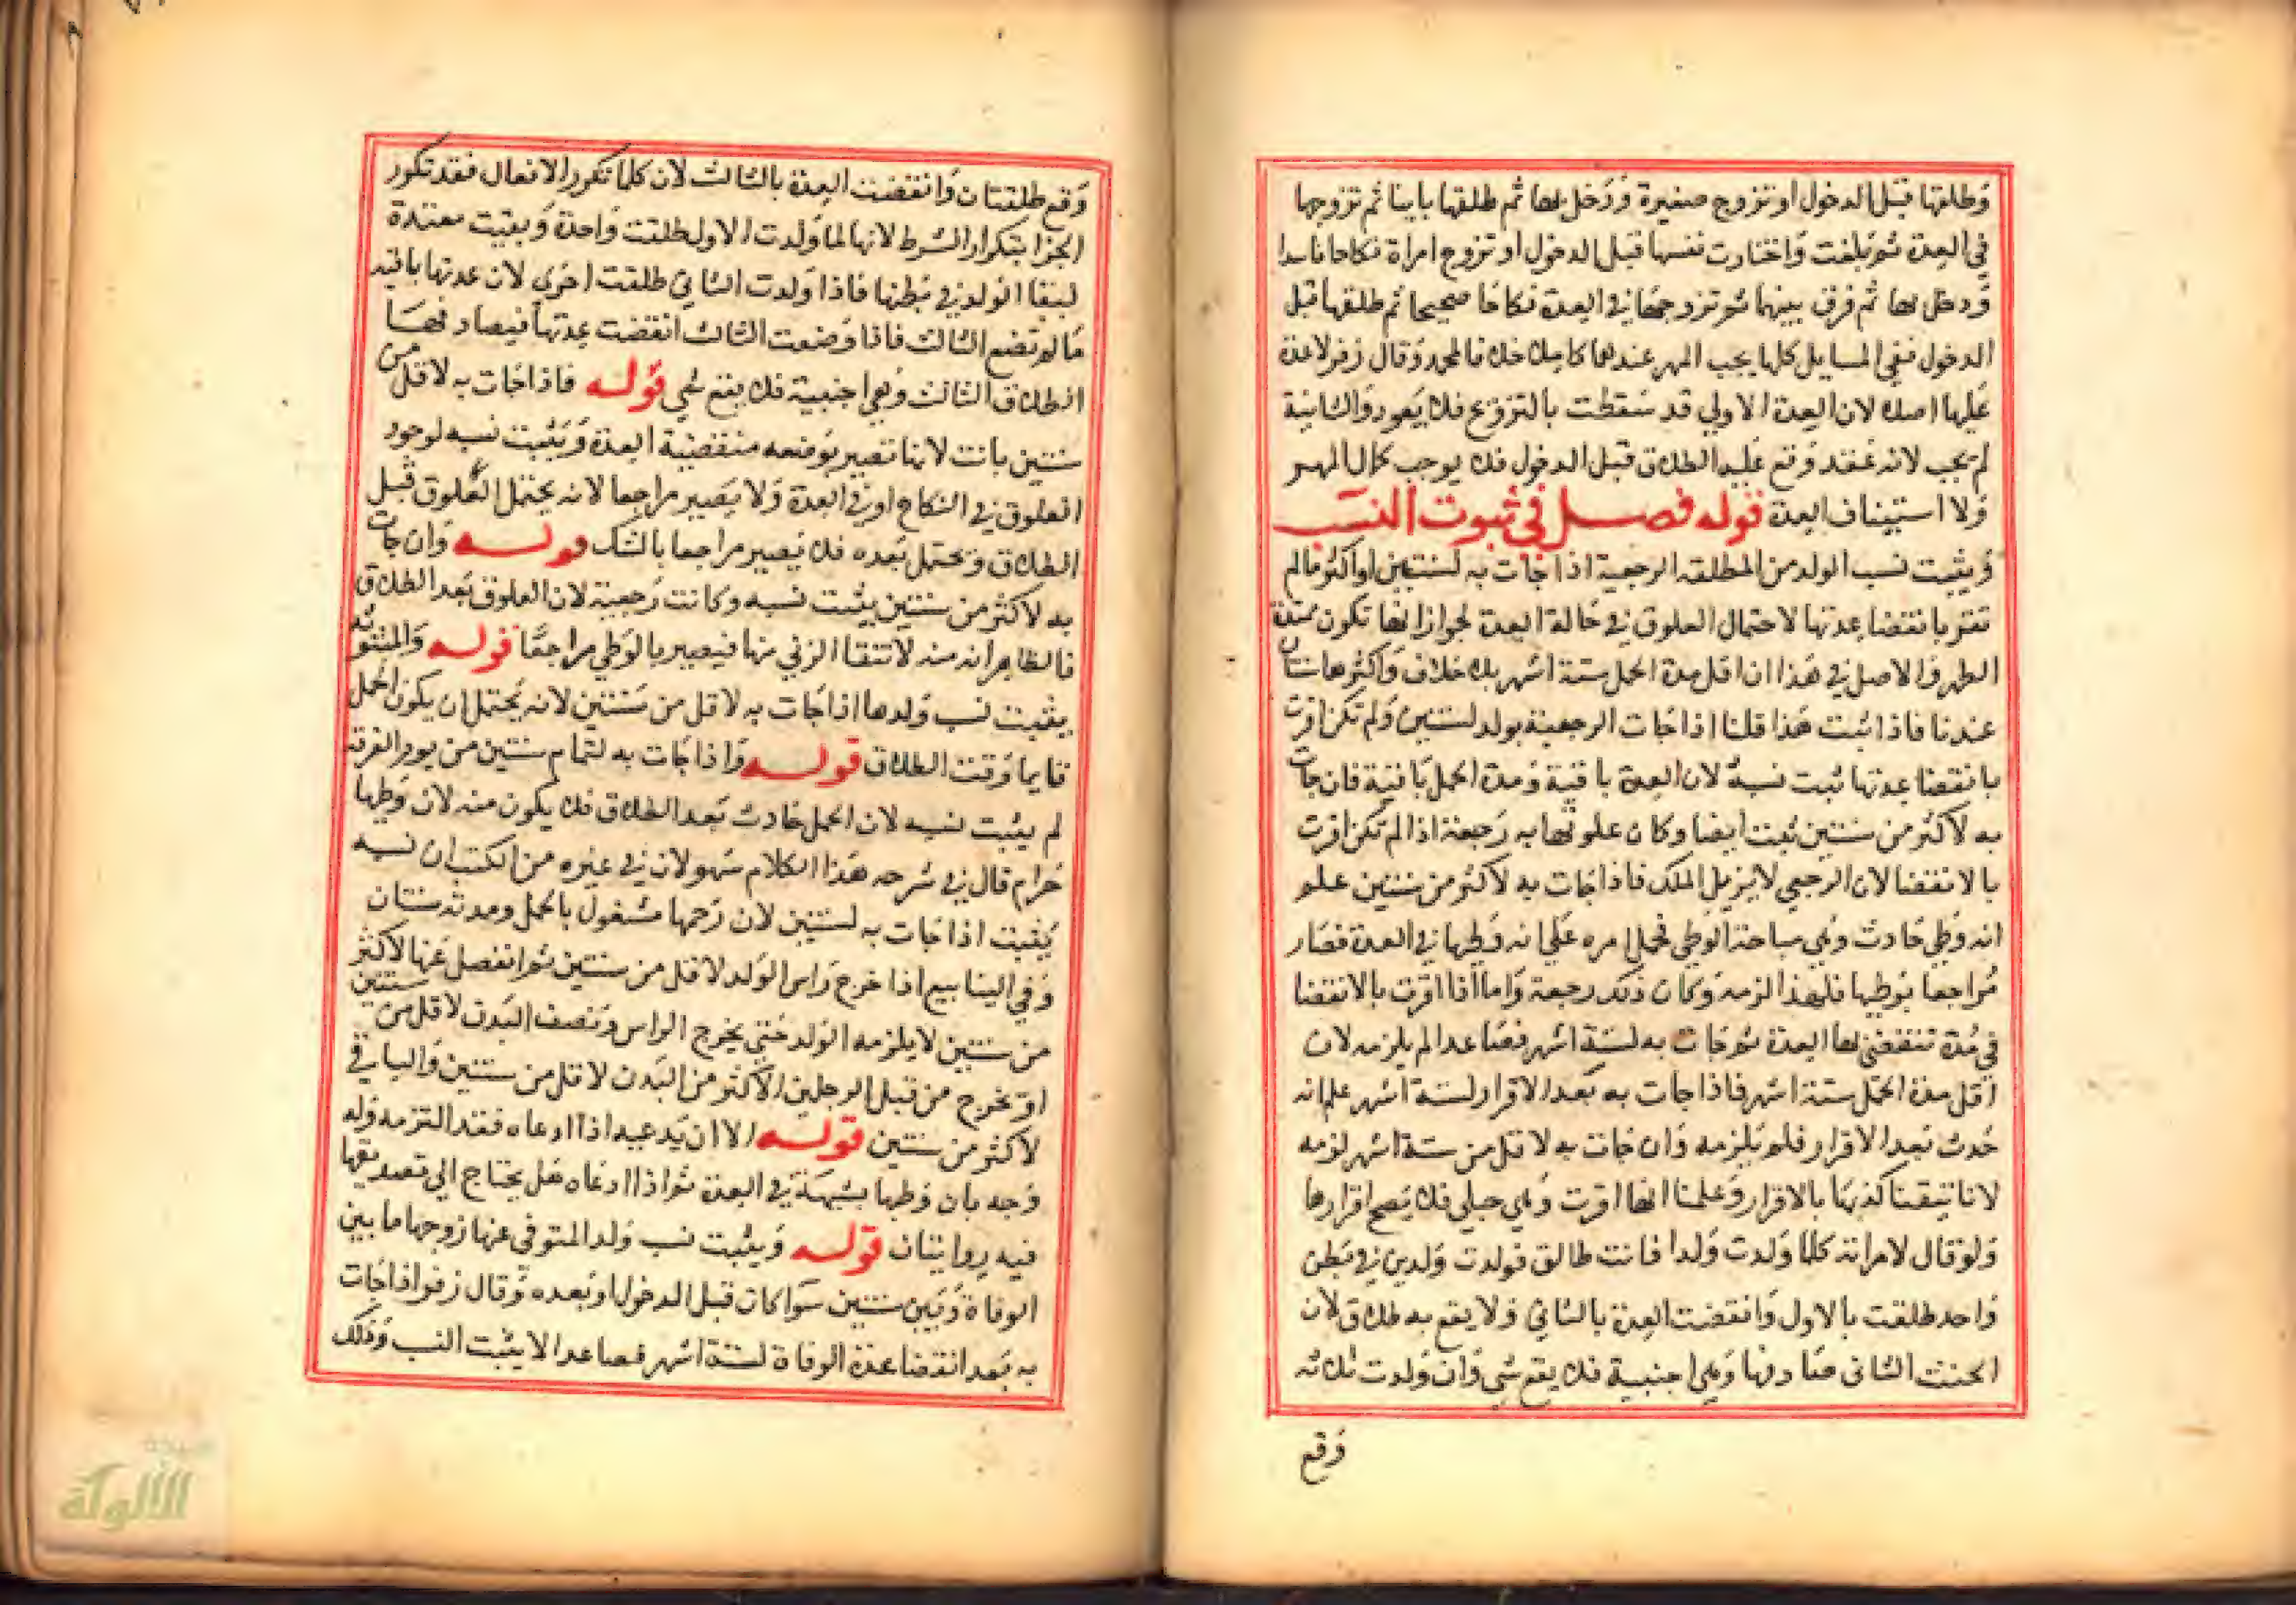 وطلقها قبل الدخول او تزوج صغيرة ودخل بها ثم طلقها باينا ثم تزوجها
في العدة ثم بلغت واختارت نفسها قبل الدخول او تزوج امراة نكاحا فاسدا
ودخل بها ثم فرق بينهما ثم تزوجها في العدة نكاحا صحيحا ثم طلقها قبل
الدخول ففي المسايل كلها يجب المهر عندهما كاملا خلافا لمحمد وقال زفر لا عدة
عليها اصلا لان العدة الاولي قد سقطت بالتزوج فلا يعود والثانية
لم يجب لانه عقد وقع عليه الطلاق قبل الدخول فلا يوجب كمال المهر
ولا استيناف العدة قوله فصل في ثبوت النسب
ويثبت نسب الولد من المطلقه الرجعية اذا جات به لسنتين او اكثر مالم
تقر بانقضا عدتها لاحتمال العلوق في حالة العدة لجواز انها تكون ممتدة
الطهر والاصل في هذا ان اقل مدة الحمل ستة اشهر بلا خلاف واكثرها سنتان
عندنا فاذا ثبت هذا قلنا اذا جات الرجعية بولد لسنتين ولم تكن اقرت
بانقضا عدتها ثبت نسبه لان العدة باقية ومدة الحمل باقية فان جات
به لاكثر من سنتين ثبت ايضا وكان علوقها به رجعة اذا لم تكن اقرت
بالانقضا لان الرجعي لا يزيل الملك فاذا جات به لاكثر من سنتين علم
انه وطي حادث وهي مباحة الوطي فحمل امره علي انه وطيها في العدة فصار
مراجعا بوطيها فلهذا لزمه وكان ذلك رجعة واما اذا اقرت بالانقضا
في مدة تنقضي بها العدة ثم جات به لستة اشهر فصاعدا لم يلزمه لان
اقل مدة الحمل ستة اشهر فاذا جات به بعد الاقرار لستة اشهر علم انه
حدث بعد الاقرار فلم يلزمه وان جات به لاقل من ستة اشهر لزمه
لانا تيقنا كذبها بالاقرار وعلمنا انها اقرت وهي حبلي فلا يصح اقرارها
ولو قال لامراته كلما ولدت ولدا فانت طالق فولدت ولدين في بطن
واحد طلقت بالاول وانقضت العدة بالثاني ولا يقع به طلاق لان
الحنث الثاني صادفها وهي اجنبية فلا يقع شي وان ولدت ثلاثه
وقع
وقع طلقتان وانقضت العدة بالثالث لان كلما تكرر الافعال فقد تكرر
الجزا بتكرار الشرط لانها لما ولدت الاول طلقت واحدة وبقيت معتدة
لبقا الولد في بطنها فاذا ولدت الثاني طلقت اخري لان عدتها باقيه
مالم تضع الثالث فاذا وضعت الثالث انقضت عدتها فيصادفها
الطلاق الثالث وهي اجنبية فلا يقع شي قوله فاذا جات به لاقل من
سنتين بانت لانها تصير بوضعه منقضية العدة ويثبت نسبه لوجود
العلوق في النكاح او في العدة ولا يصير مراجعا لانه يحتمل العلوق قبل
الطلاق ويحتمل بعده فلا يصير مراجعا بالشك قوله وان جات
به لاكثر من سنتين يثبت نسبه وكانت رجعية لان العلوق بعد الطلاق
فالظاهر انه منه لانتفا الزني منها فيصير بالوطي مراجعا قوله والمبتوتة
يثبت نسب ولدها اذا جات به لاقل من سنتين لانه يحتمل ان يكون الحمل
قايما وقت الطلاق قوله واذا جات به لتمام سنتين من يوم الفرقة
لم يثبت نسبه لان الحمل حادث بعد الطلاق فلا يكون منه لان وطيها
حرام قال في شرحه هذا الكلام سهو لان في غيره من الكتب ان نسبه
يثبت اذا جات به لسنتين لان رحمها مشغول بالحمل ومدته سنتان
وفي الينابيع اذا خرج راس الولد لاقل من سنتين ثم انفصل عنها لاكثر
من سنتين لا يلزمه الولد حتي يخرج الراس ونصف البدن لاقل من سنتين
او يخرج من قبل الرجلين الاكثر من البدن لاقل من سنتين والباقي
لاكثر من سنتين قوله الا ان يدعيه اذا ادعاه فقد التزمه وله
وجه بان وطيها بشبهة في العدة ثم اذا ادعاه هل يحتاج الي تصديقها
فيه روايتان قوله ويثبت نسب ولد المتوفي عنها زوجها ما بين
الوفاة وبين سنتين سوا كان قبل الدخول او بعده وقال زفر اذا جات
به بعد انقضا عدة الوفاة لستة اشهر فصاعدا لا يثبت النسب وذلك